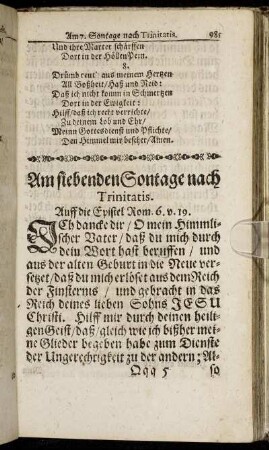 Am 7. Sontage nach Trinitatis. 981
Und ihre Marter schärffen
Dort in der Höllen-Pein.
8.
Drümb reut' aus meinem Hertzen
All Boßheit / Haß und Neid:
Daß ich nicht komm in Schmertzen
Dort in der Ewigkeit:
Hilff / daß ich recht verrichte /
Zu deinem Lob und Ehr /
Meinn Gottesdienst und Pflichte /
Den Himmel mir beschehr / Amen.
Am siebenden Sontage nach
Trinitatis.
Auff die Epistel Rom. 6. v. 19.
ICh dancke dir / O mein Himmli-
scher Vater / daß du mich durch
dein Wort hast beruffen / und
aus der alten Geburt in die Neue ver-
setzet / daß du mich erlöset aus dem Reich
der Finsternis / und gebracht in das
Reich deines lieben Sohns JESU
Christi. Hilff mir durch deinen heili-
gen Geist / daß / gleich wie ich bißher mei-
ne Glieder begeben habe zum Dienste
der Ungerechtigkeit zu der andern; Al-
Qqq 5 so